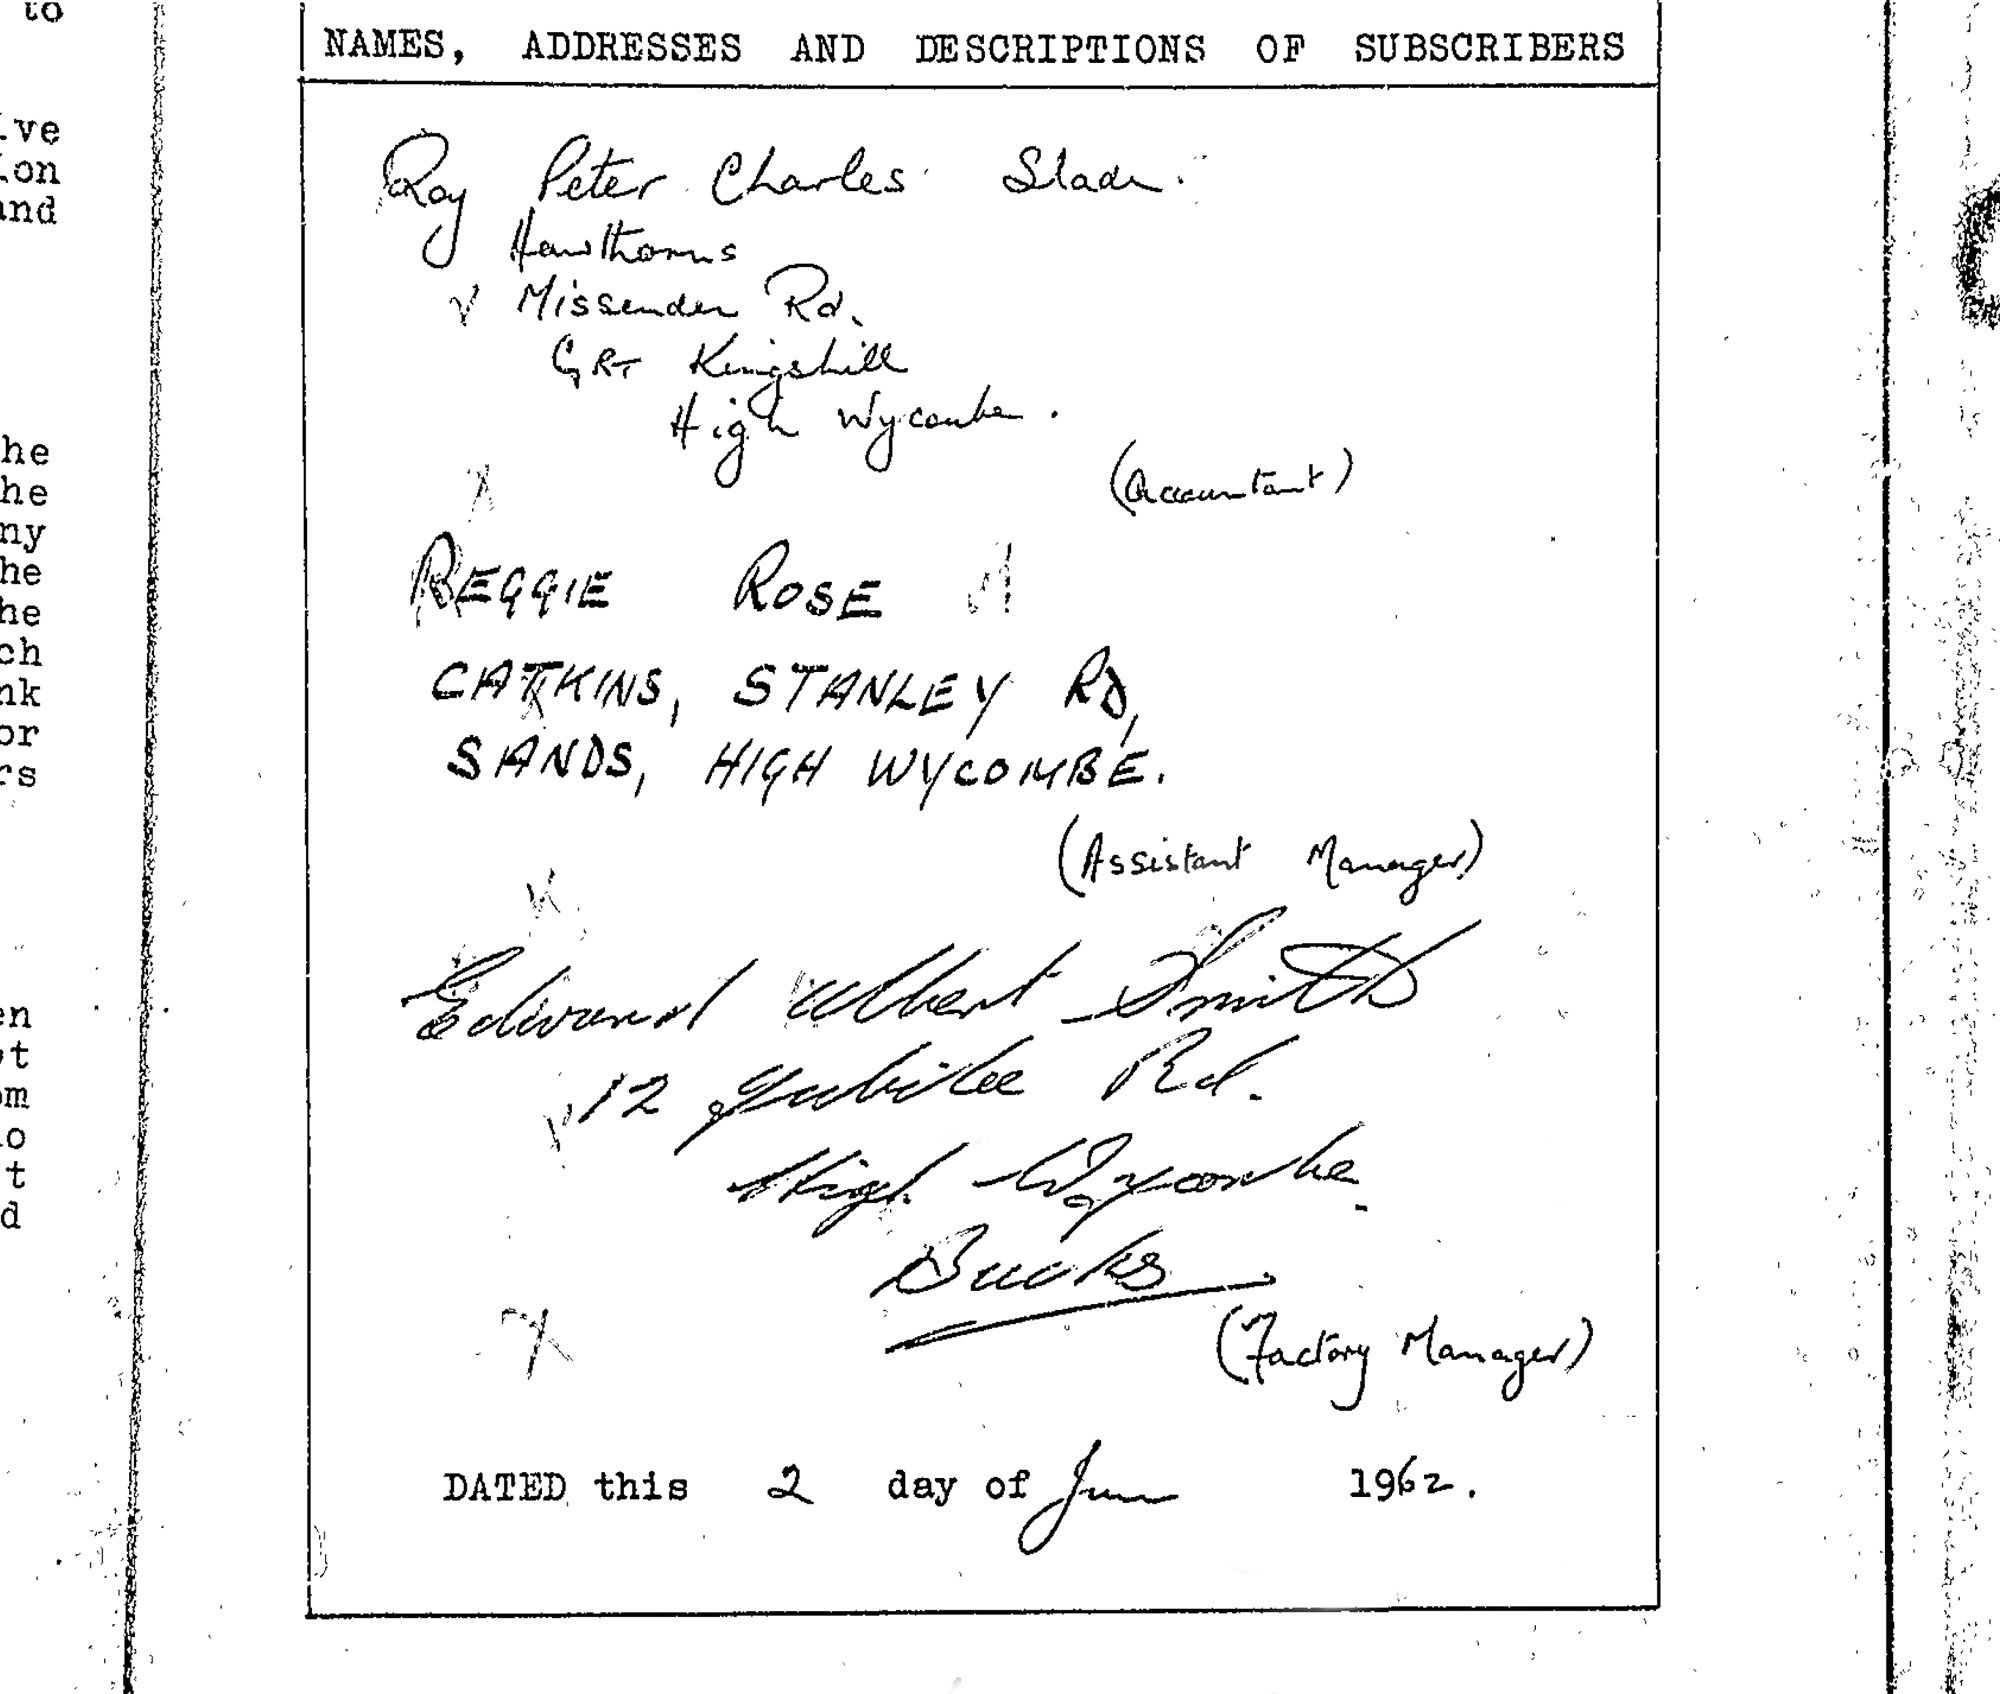 to
ive
ion
and
he
he
ny
he
he
ch
nk
or
rs
en
ot
om
no
t
d
NAMES, ADDRESSES AND DESCRIPTIONS OF SUBSCRIBERS
Roy Peter Charles Slade.
Hawthorns
Missenden Rd.
GRT Kingshill
High Wycombe.
(Accountant)
REGGIE ROSE
CATKINS, STANLEY RD,
SANDS, HIGH WYCOMBE.
(Assistant Manager)
Edward Albert Smith
12 Jubilee Rd.
High Wycombe.
Bucks
(Factory Manager)
DATED this 2 day of June 1962.